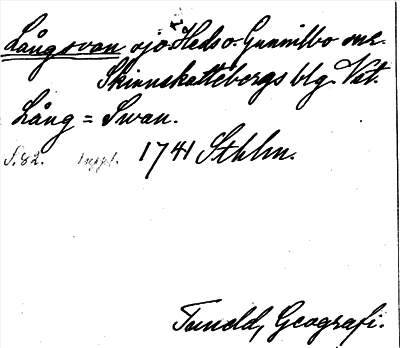 Långsvan sjö Heds o. Gunnilbo snr.
Skinnskattebergs blg. Vstm.
Lång = Swan.
S. 82. 1741 Sthlm.
Tuneld, Geografi.